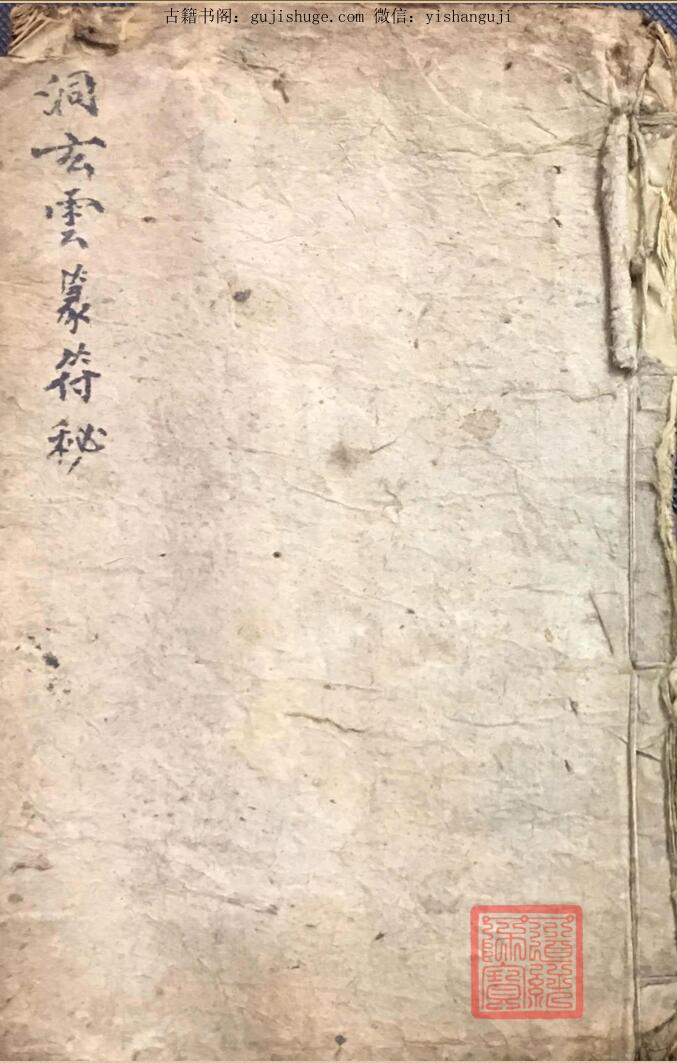 古籍书阁：gujishuge.com 微信：yishanguji
洞玄雲篆符秘
道經師寶